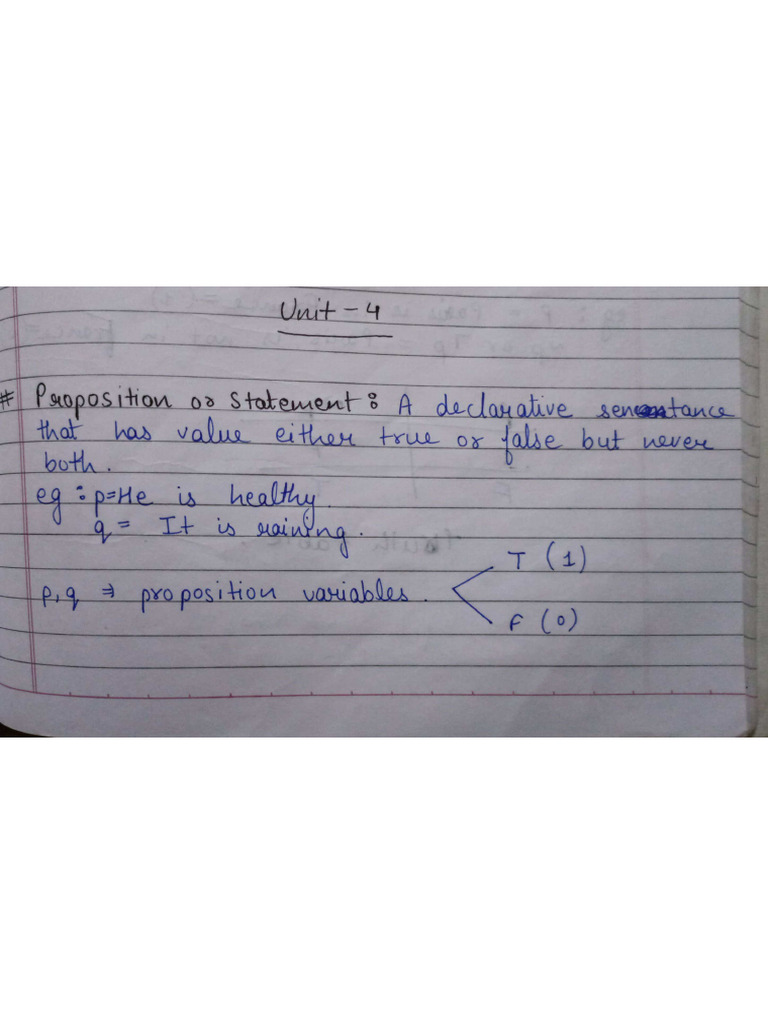 Unit - 4
# Proposition or Statement : A declarative sentance
that has value either true or false but never
both.
eg : p=He is healthy.
q = It is raining.
T (1)
p,q ⇒ proposition variables.
F (0)